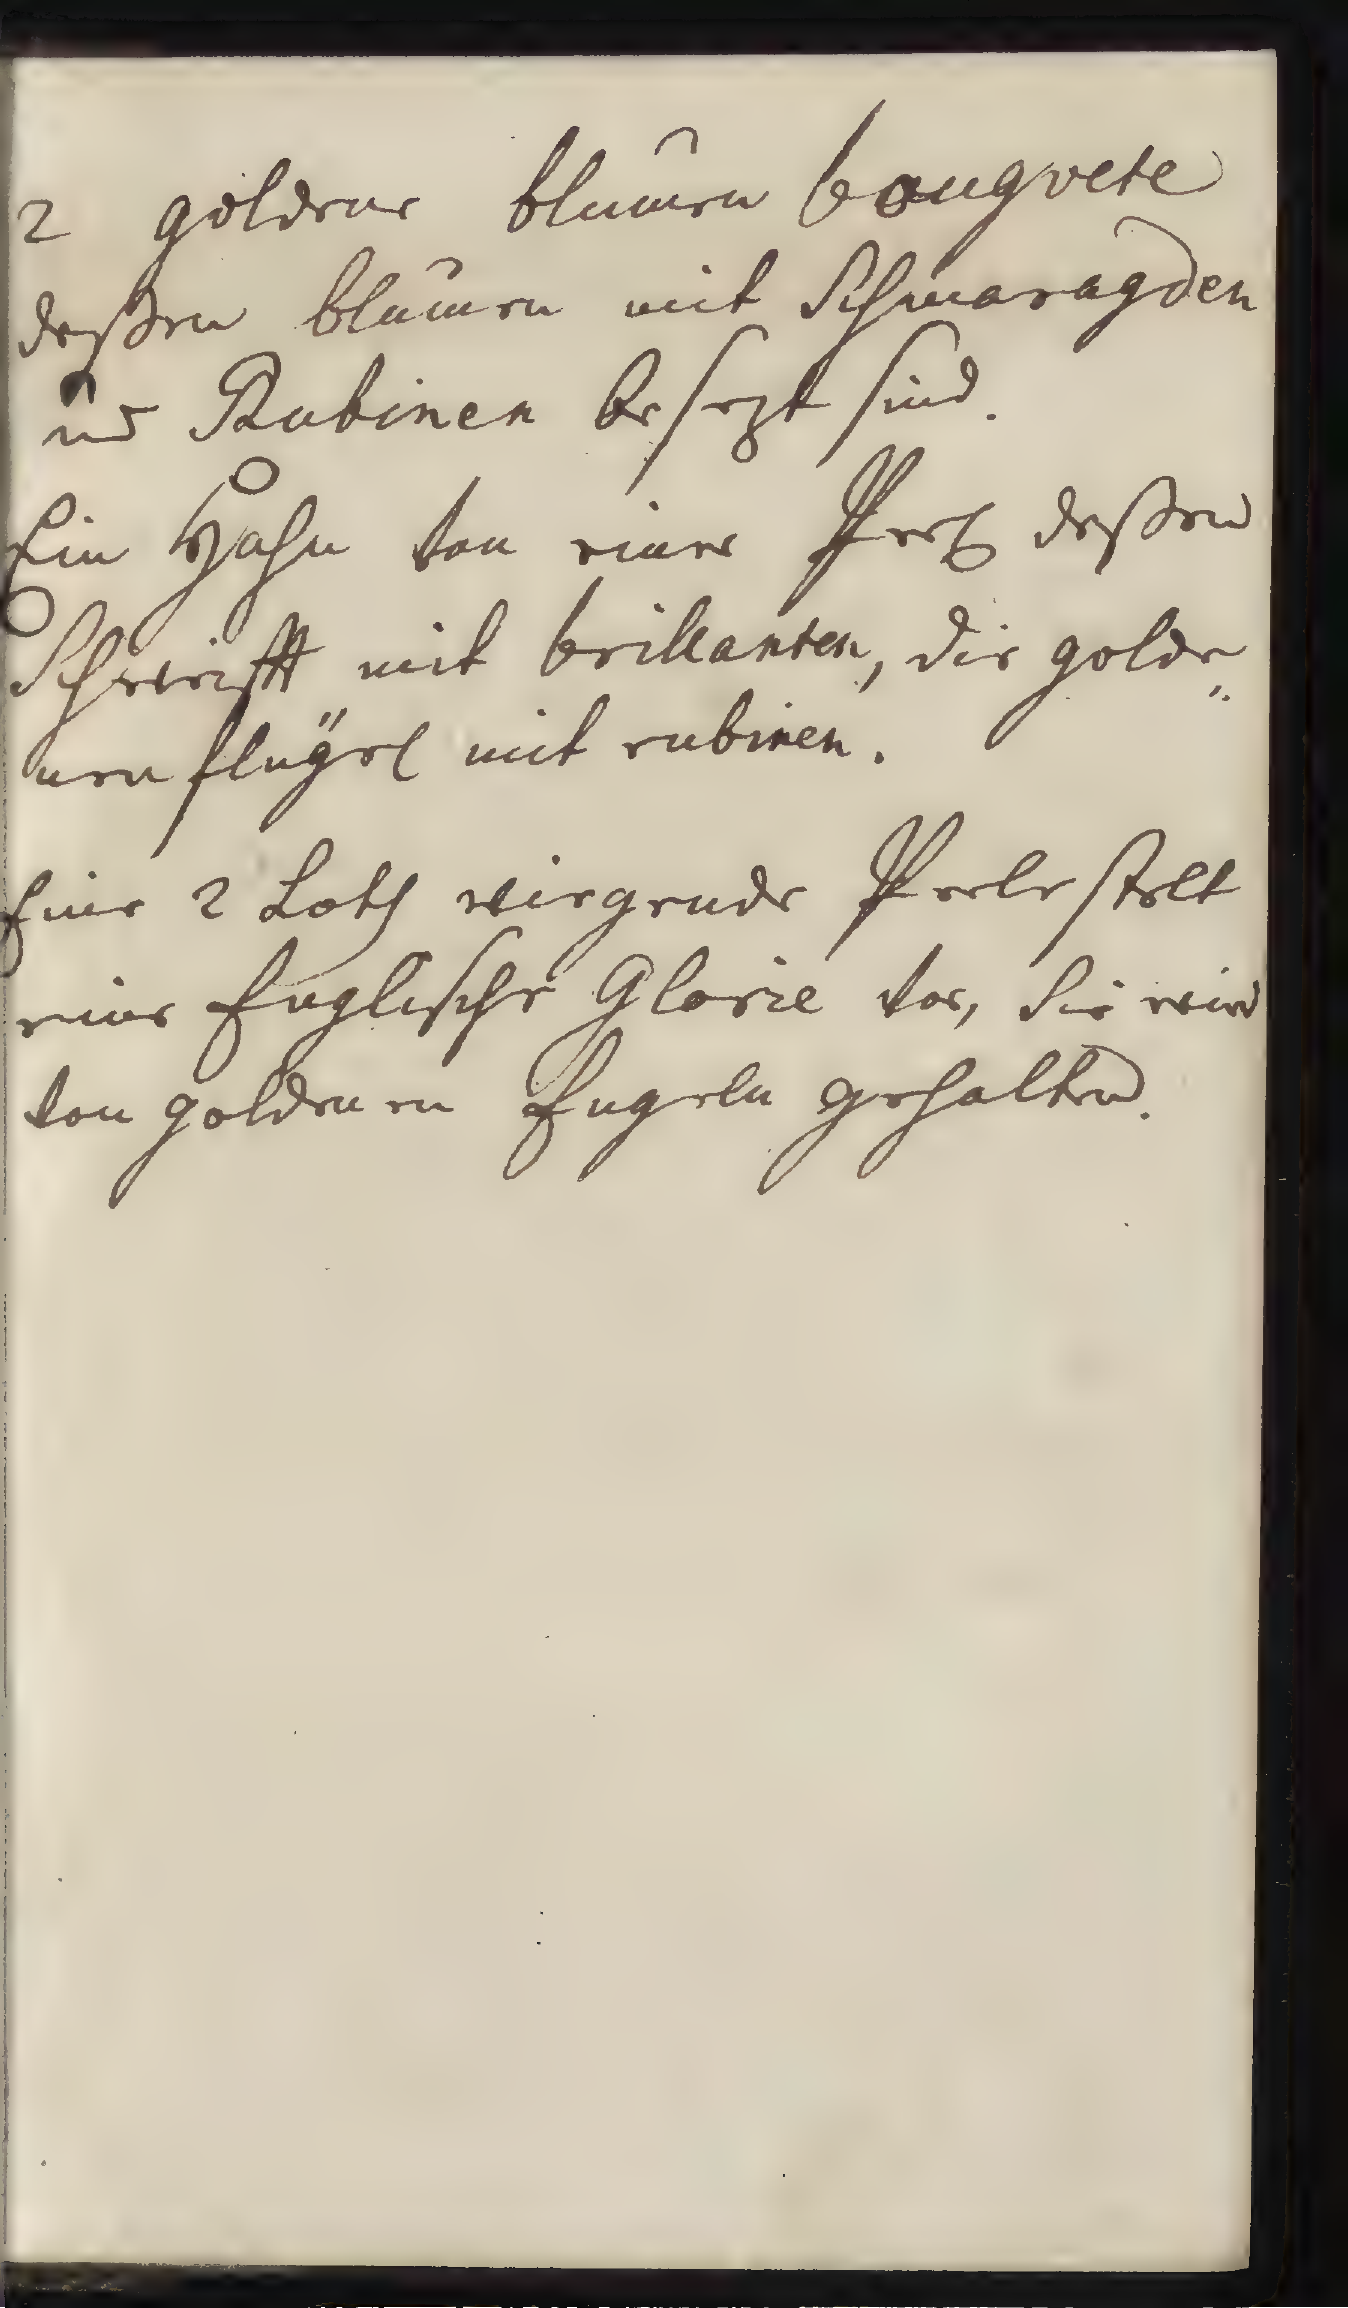 2 goldene blumen bouqvete
deßen blumen mit Schmaragden
und Rubinen besezt sind.
Ein Hahn von einer Perl deßen
Schweifft mit brillanten, die golde„
nen flügel mit rubinen.
Eine 2 Loth wiegende Perle stelt
eine Englische Glorie vor, Sie wird
von goldenen Engeln gehalten.